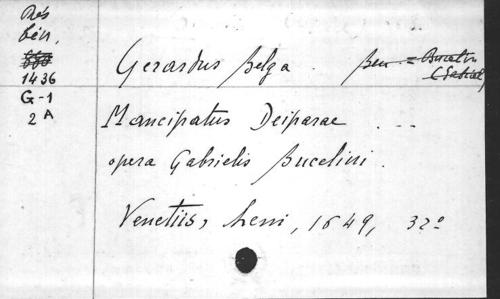 Rés
bén.
1436
G-1
2 A
Gerardus Belga. Ben. = Bucelin
(Gabriel)
Mancipatus Deiparae ...
opera Gabrielis Bucelini.
Venetiis, heni, 1649, 32º